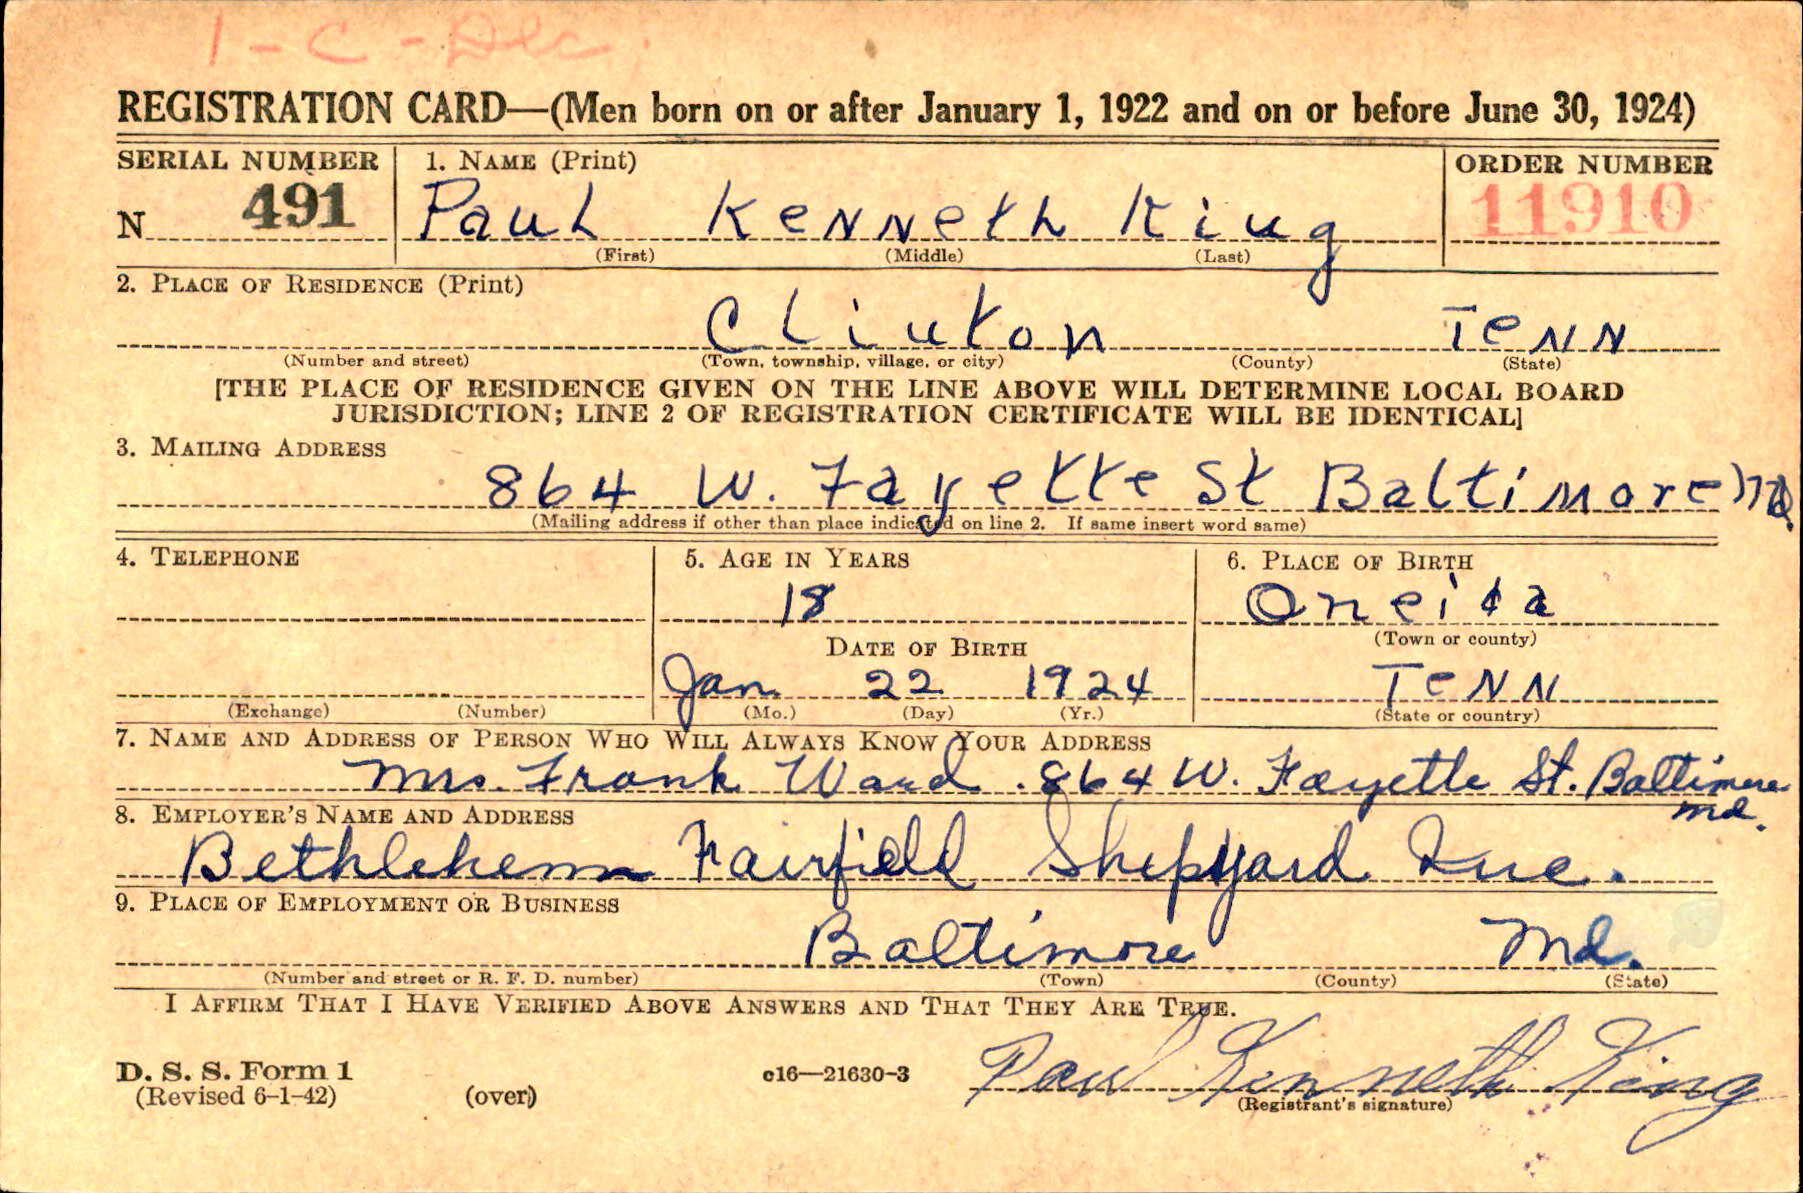 1-C-Dec.
REGISTRATION CARD—(Men born on or after January 1, 1922 and on or before June 30, 1924)
SERIAL NUMBER 1. NAME (Print) ORDER NUMBER
N 491 Paul Kenneth King 11910
(First) (Middle) (Last)
2. PLACE OF RESIDENCE (Print)
Clinton Tenn
(Number and street) (Town, township, village, or city) (County) (State)
[THE PLACE OF RESIDENCE GIVEN ON THE LINE ABOVE WILL DETERMINE LOCAL BOARD
JURISDICTION; LINE 2 OF REGISTRATION CERTIFICATE WILL BE IDENTICAL]
3. MAILING ADDRESS
864 W. Fayette St Baltimore Md.
(Mailing address if other than place indicated on line 2. If same insert word same)
4. TELEPHONE 5. AGE IN YEARS 6. PLACE OF BIRTH
18 Oneida
DATE OF BIRTH (Town or county)
Jan 22 1924 Tenn
(Exchange) (Number) (Mo.) (Day) (Yr.) (State or country)
7. NAME AND ADDRESS OF PERSON WHO WILL ALWAYS KNOW YOUR ADDRESS
Mrs. Frank Ward. 864 W. Fayette St. Baltimore
Md.
8. EMPLOYER'S NAME AND ADDRESS
Bethlehem Fairfield Shipyard Inc.
9. PLACE OF EMPLOYMENT OR BUSINESS
Baltimore Md.
(Number and street or R. F. D. number) (Town) (County) (State)
I AFFIRM THAT I HAVE VERIFIED ABOVE ANSWERS AND THAT THEY ARE TRUE.
D. S. S. Form 1 c16—21630-3 Paul Kenneth King
(Revised 6-1-42) (over) (Registrant's signature)